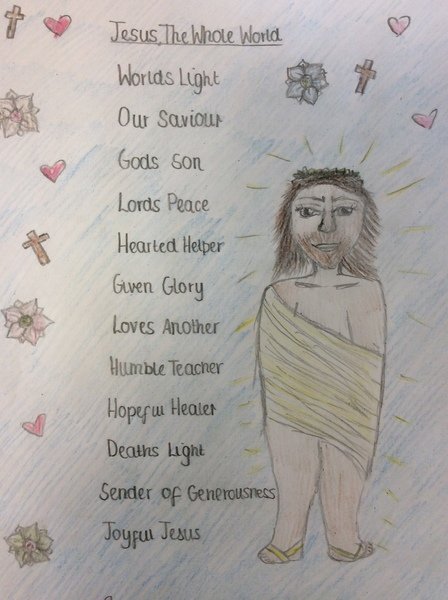 Jesus, The Whole World
Worlds Light
Our Saviour
Gods Son
Lords Peace
Hearted Helper
Given Glory
Loves Another
Humble Teacher
Hopeful Healer
Deaths Light
Sender of Generousness
Joyful Jesus